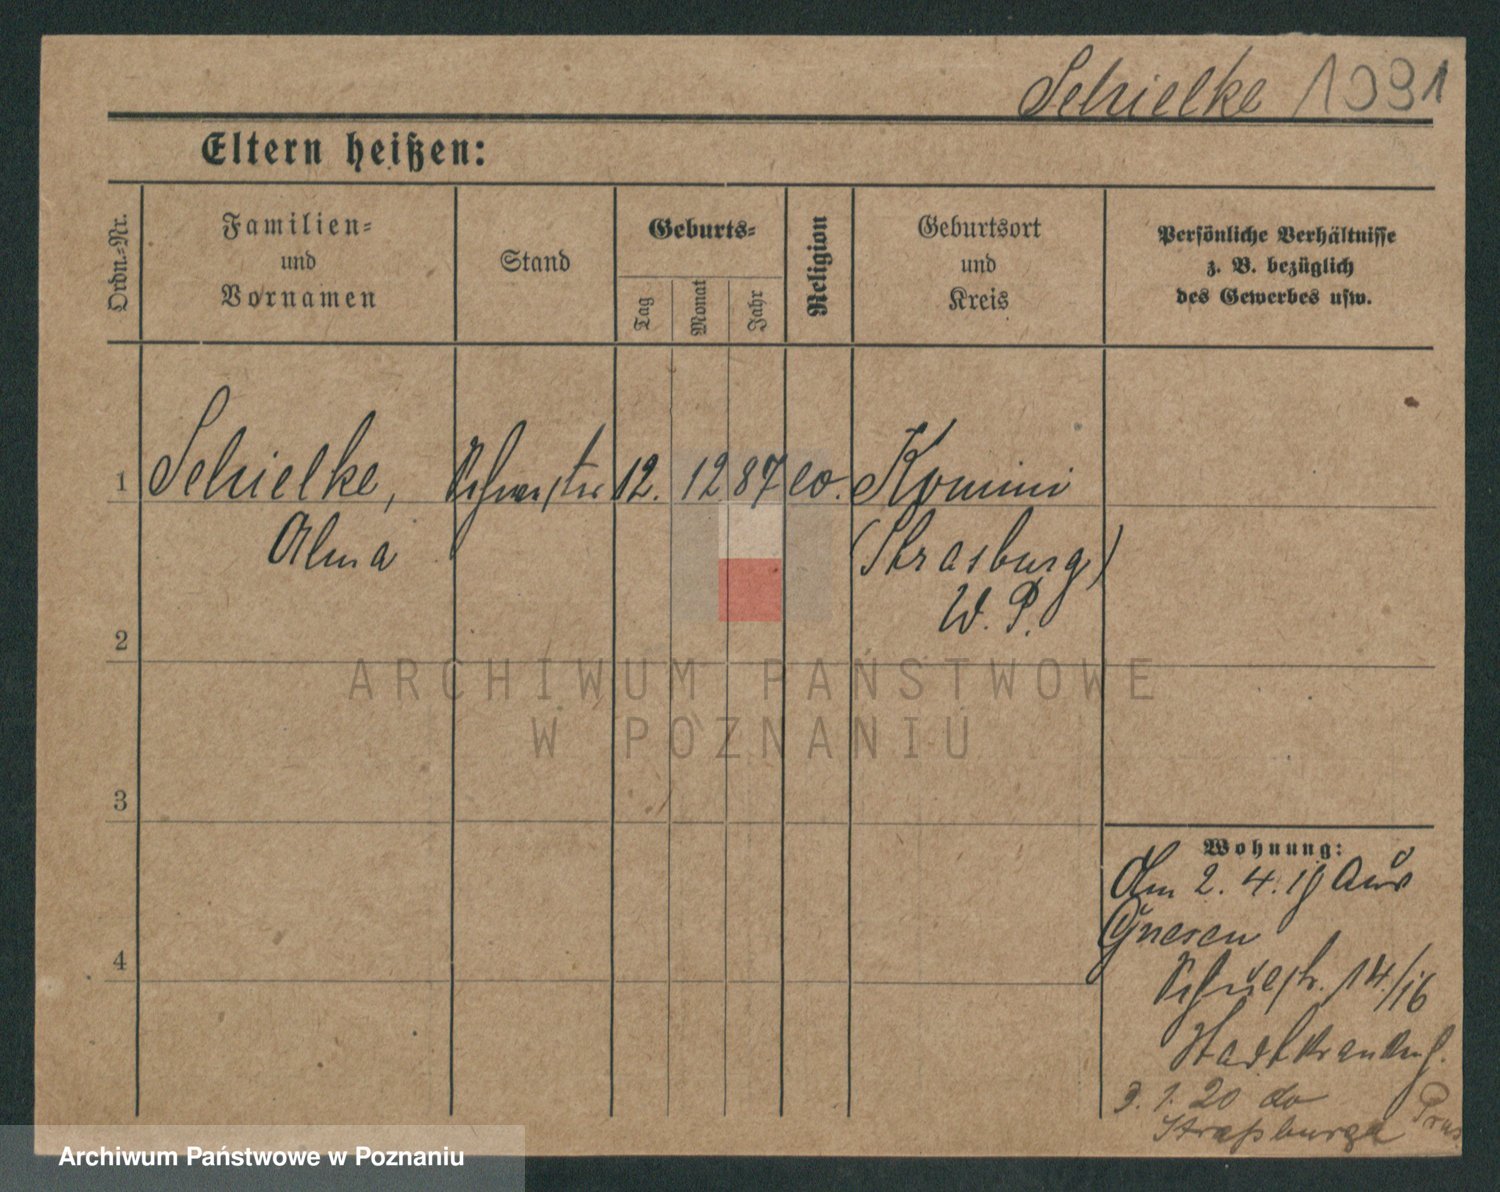 Schielke 1991
Eltern heißen:
Ordn.-Nr.
Familien-
und
Vornamen
Stand
Geburts-
Tag
Monat
Jahr
Religion
Geburtsort
und
Kreis
Persönliche Verhältnisse
z. B. bezüglich
des Gewerbes usw.
1 Schielke, Schwester 12. 12 87 ev. Komini
Alma (Strasburg)
W. P.
2
3
4
ARCHIWUM PAŃSTWOWE
W POZNANIU
Wohnung:
Am 2. 4. 19 aus
Gnesen
Schulstr. 14/16
Stadtkrankh.
3. 1. 20 do
Straßburga Prus
Archiwum Państwowe w Poznaniu